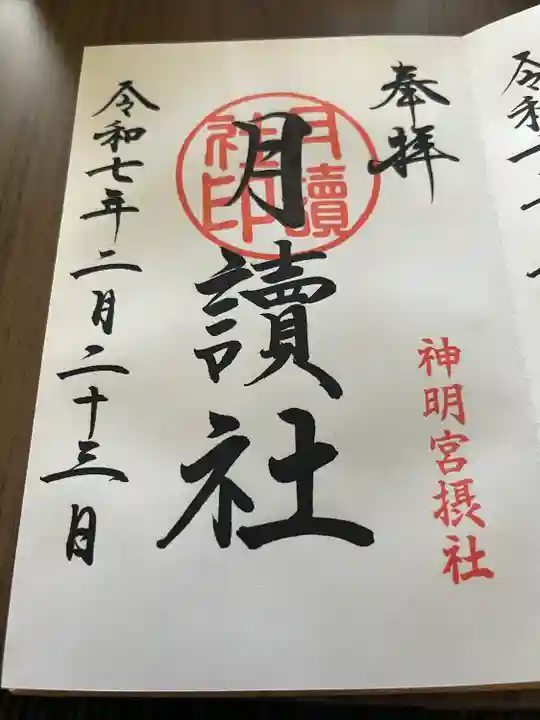 奉拝
神明宮摂社
月讀社
月讀社印
令和七年二月二十三日
令和